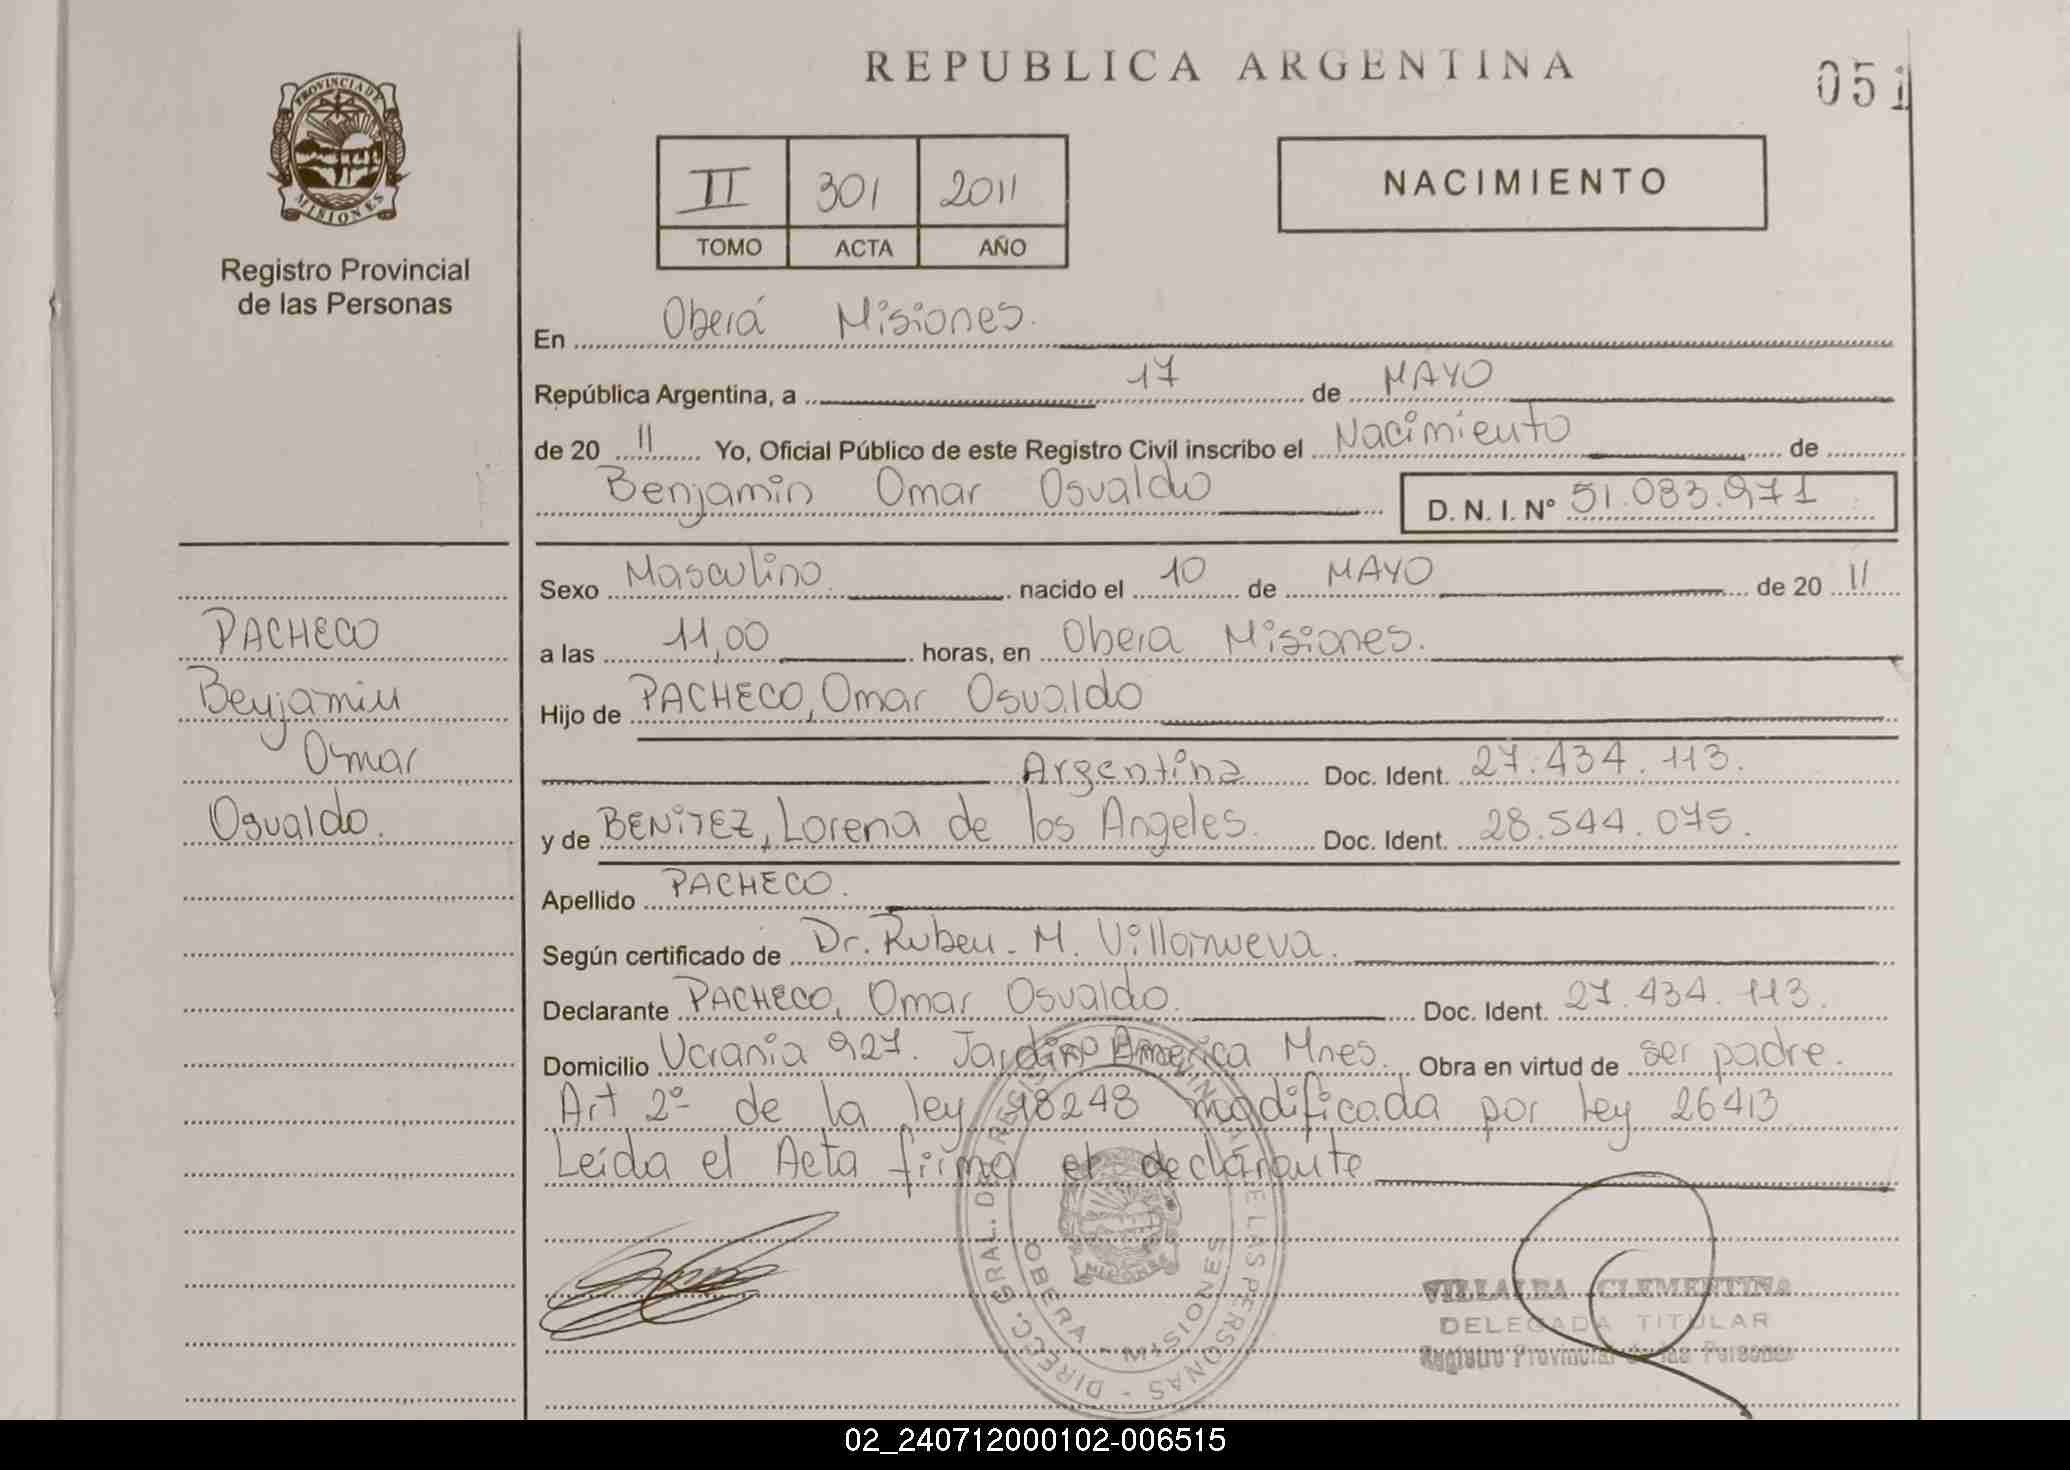 REPUBLICA ARGENTINA
051
PROVINCIA DE
MISIONES
Registro Provincial
de las Personas
II 301 2011
TOMO ACTA AÑO
NACIMIENTO
En Oberá Misiones.
República Argentina, a 17 de MAYO
de 20 11 Yo, Oficial Público de este Registro Civil inscribo el Nacimiento de
Benjamin Omar Osvaldo D. N. I. Nº 51.083.971
Sexo Masculino. nacido el 10 de MAYO de 20 11
a las 11,00 horas, en Obera Misiones.
Hijo de PACHECO, Omar Osvaldo
Argentina Doc. Ident. 27.434.113.
y de BENITEZ, Lorena de los Angeles. Doc. Ident. 28.544.075.
Apellido PACHECO.
Según certificado de Dr. Ruben. M. Villanueva.
Declarante PACHECO, Omar Osvaldo. Doc. Ident. 27.434.113.
Domicilio Ucrania 927. Jardin America Mnes. Obra en virtud de ser padre.
Art 2º de la ley 18248 modificada por ley 26413
Leida el Acta firma el declarante
PACHECO
Benjamin
Omar
Osvaldo.
DIRECC. GRAL. DE REGISTRO PROVINCIAL DE LAS PERSONAS -
OBERA - MISIONES
MISIONES
VILLALBA CLEMENTINA
DELEGADA TITULAR
Registro Provincial de las Personas
02_240712000102-006515